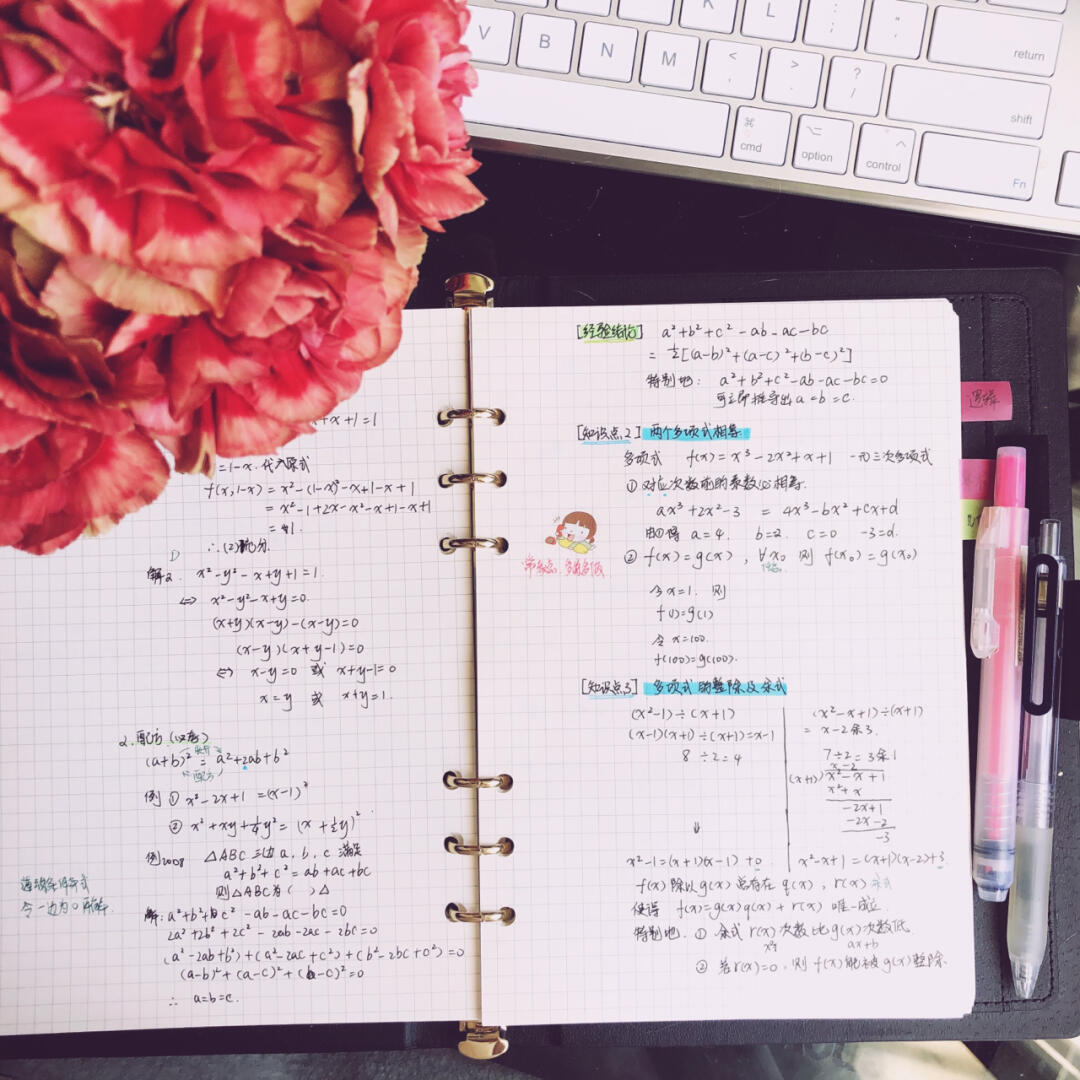 V B N M K L : ; " '
< , > . ? / return
⌘ cmd ⌥ option ^ control shift
Fn
+x+1=1
=1-x. 代入原式
f(x,1-x) = x²-(1-x)²-x+1-x+1
= x²-1+2x-x²-x+1-x+1
= 1.
∴(2)充分.
解2. x²-y²-x+y+1=1.
⇔ x²-y²-x+y=0.
(x+y)(x-y)-(x-y)=0
(x-y)(x+y-1)=0
⇔ x-y=0 或 x+y-1=0
x=y 或 x+y=1.
2. 配方(必考)
展开
(a+b)² = a²+2ab+b²
配方
例 ① x²-2x+1 =(x-1)²
② x²+xy+¼y² = (x+½y)²
例2008 △ABC 三边 a, b, c 满足
a²+b²+c² = ab+ac+bc
则△ABC为( )△
遇到条件等式
令一边为0再解.
解: a²+b²+c² -ab-ac-bc=0
2a²+2b²+2c²-2ab-2ac-2bc=0
(a²-2ab+b²)+(a²-2ac+c²)+(b²-2bc+c²)=0
(a-b)²+(a-c)²+(b-c)²=0
∴ a=b=c.
[经验结论] a²+b²+c²-ab-ac-bc
= ½[(a-b)²+(a-c)²+(b-c)²]
特别地: a²+b²+c²-ab-ac-bc=0
可立即推导出 a=b=c.
[知识点2] 两个多项式相等.
多项式 f(x)=x³-2x²+x+1 一元三次多项式
① 对应次数项的系数必相等.
ax³+2x²-3 = 4x³-bx²+cx+d
由①得 a=4. b=2. c=0 -3=d.
② f(x)=g(x), ∀x₀ 则 f(x₀)=g(x₀)
任意
令 x=1. 则
f(1)=g(1)
令 x=100.
f(100)=g(100).
[知识点3] 多项式的整除及余式
(x²-1)÷(x+1)
(x-1)(x+1)÷(x+1)=x-1
8÷2=4
⇓
x²-1=(x+1)(x-1)+0
(x²-x+1)÷(x+1)
= x-2余3.
7÷2=3余1
x-2
(x+1) x²-x+1
x²+x
-2x+1
-2x-2
-3
x²-x+1=(x+1)(x-2)+3
f(x)除以g(x)总存在q(x), r(x) 余式
使得 f(x)=g(x)q(x)+r(x) 唯一成立.
特别地. ① 余式r(x)次数比g(x)次数低
ax+b
② 若r(x)=0. 则f(x)能被g(x)整除.
逻辑